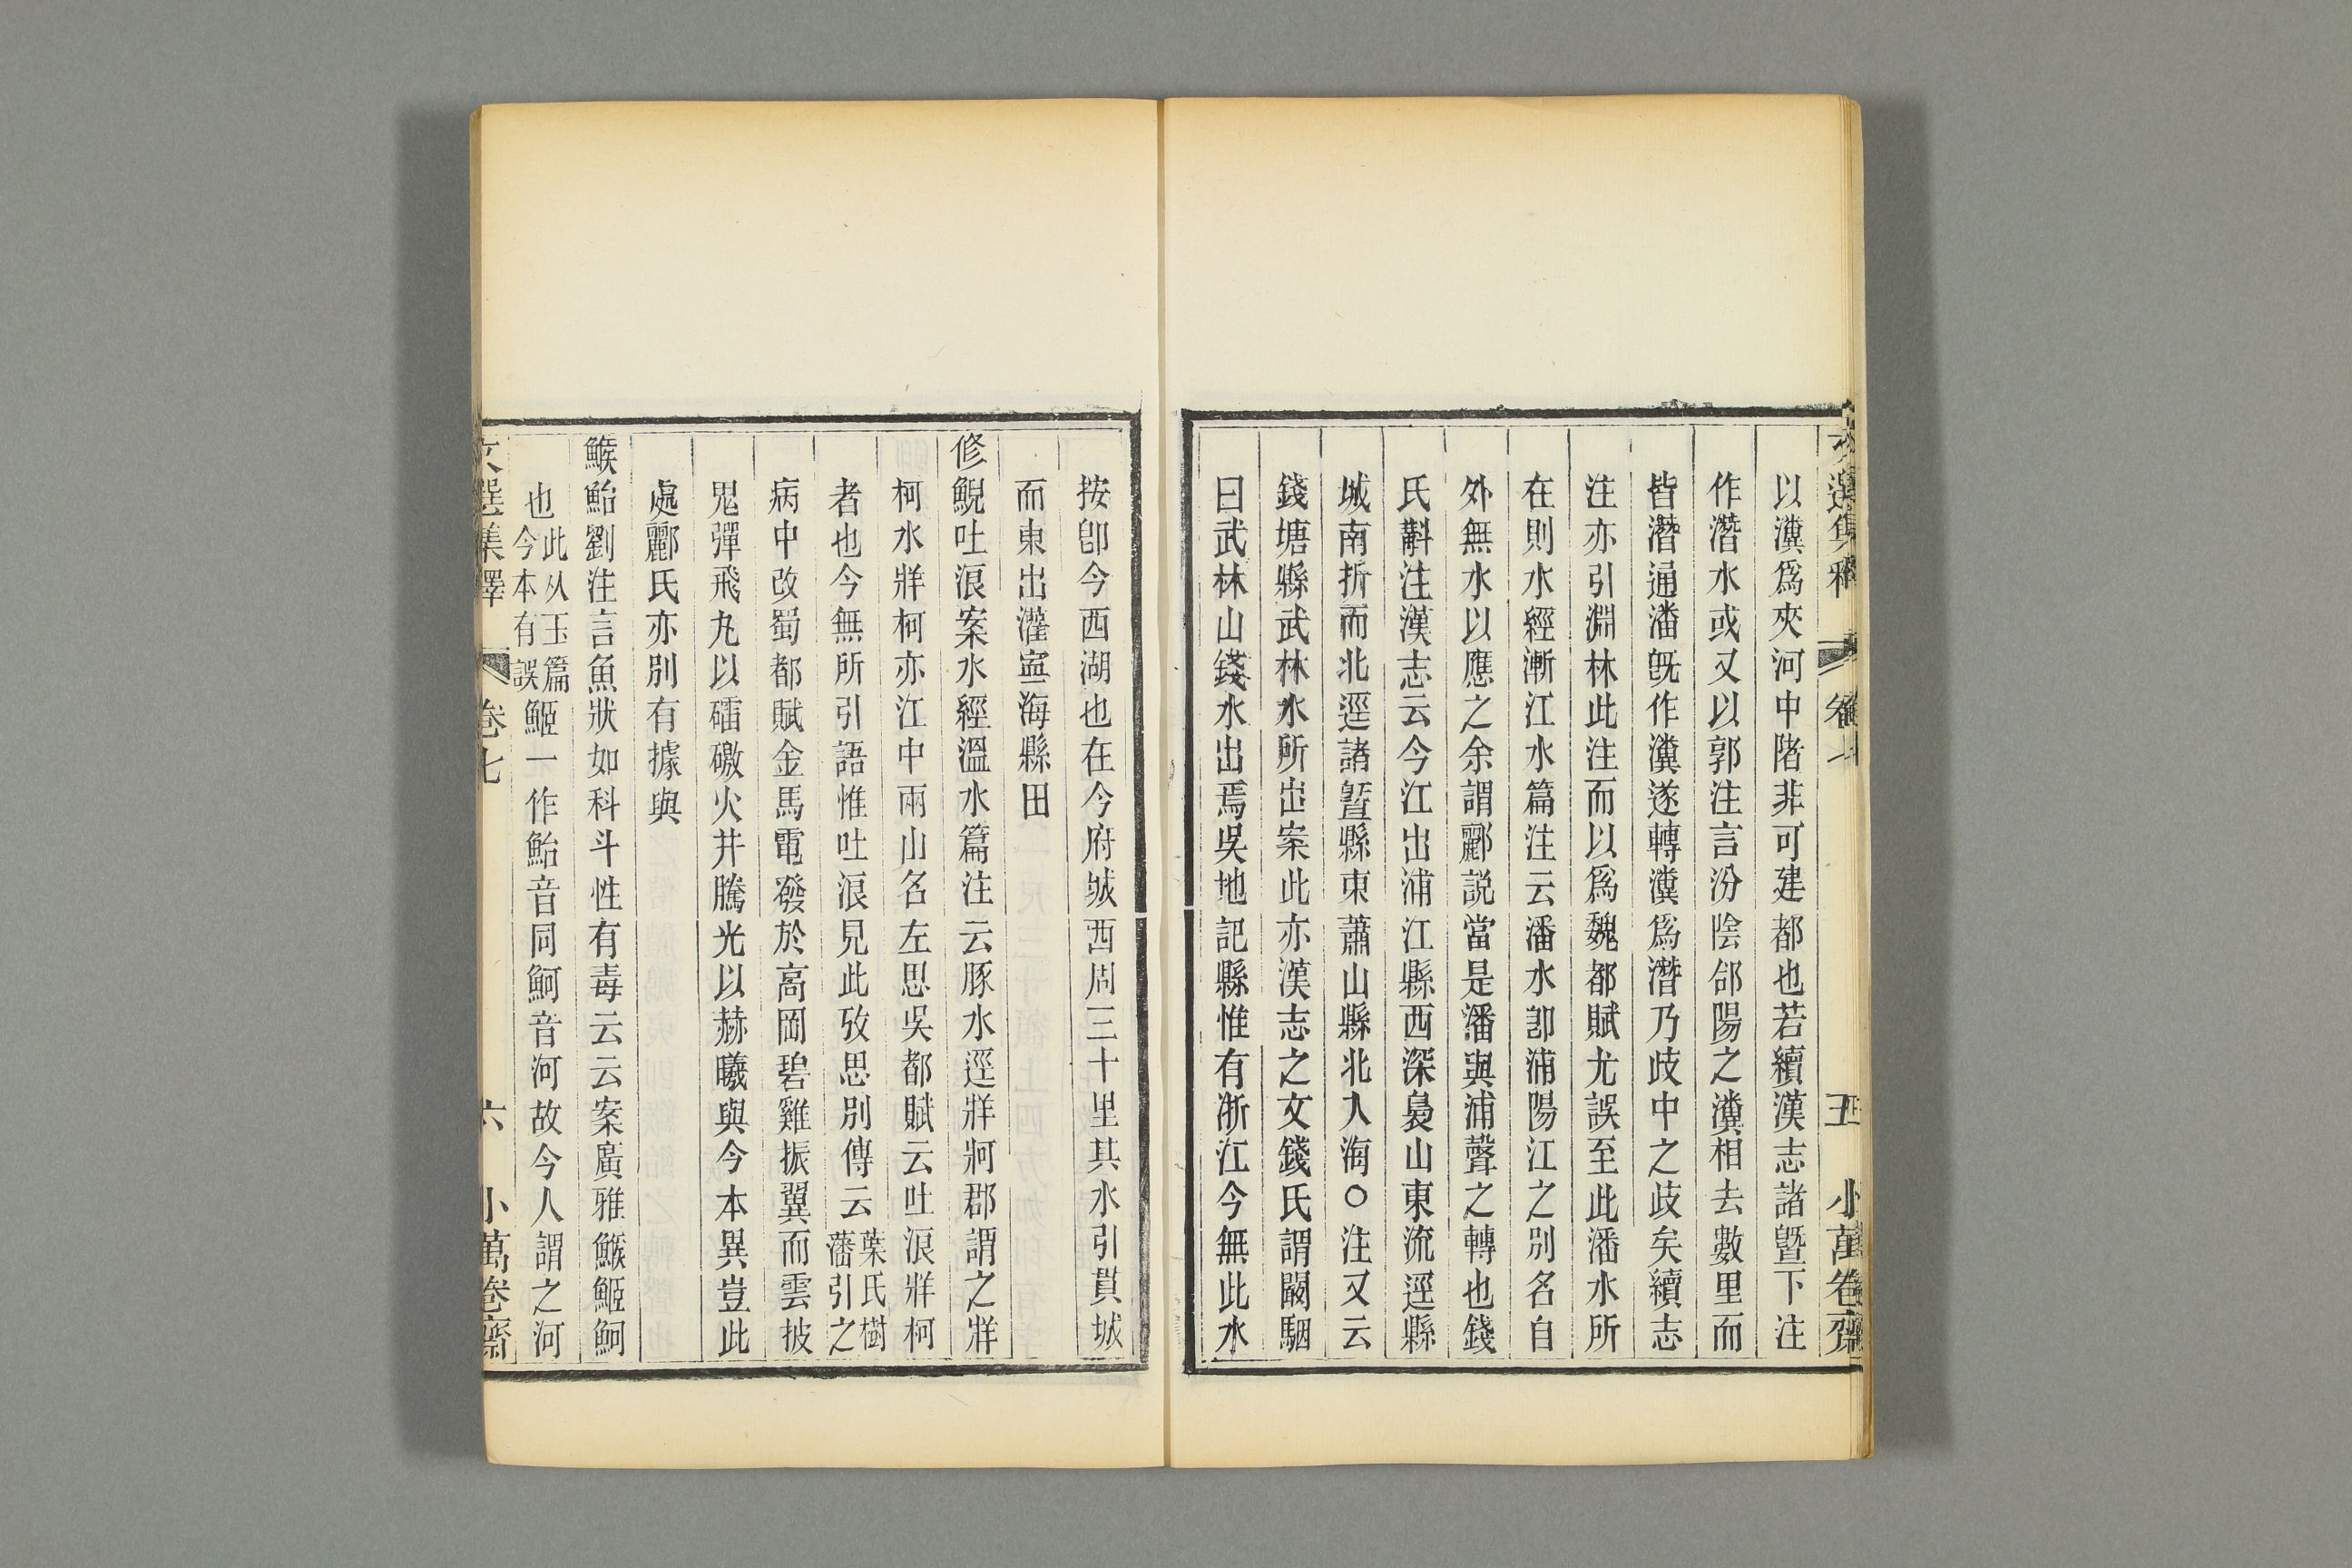 以瀵爲夾河中陼非可建都也若續漢志諸曁下注
作潛水或又以郭注言汾陰郃陽之瀵相去數里而
皆潛通潘旣作瀵遂轉瀵爲潛乃歧中之歧矣續志
注亦引淵林此注而以爲魏都賦尤誤至此潘水所
在則水經漸江水篇注云潘水卽浦陽江之別名自
外無水以應之余謂酈說當是潘與浦聲之轉也錢
氏斠注漢志云今江出浦江縣西深裊山東流逕縣
城南折而北逕諸曁縣東蕭山縣北入海○注又云
錢塘縣武林水所出案此亦漢志之文錢氏謂闞駰
曰武林山錢水出焉吳地記縣惟有浙江今無此水
按卽今西湖也在今府城西周三十里其水引貫城
而東出灌寍海縣田
修鯢吐浪案水經溫水篇注云豚水逕牂牁郡謂之牂
柯水牂柯亦江中兩山名左思吳都賦云吐浪牂柯
者也今無所引語惟吐浪見此攷思別傳云葉氏樹藩引之
病中改蜀都賦金馬電發於高岡碧雞振翼而雲披
鬼彈飛丸以礌礉火井騰光以赫曦與今本異豈此
處酈氏亦別有據與
鯸鮐劉注言魚狀如科斗性有毒云云案廣雅鯸䱌魺
也此从玉篇今本有誤䱌一作鮐音同魺音河故今人謂之河
文選集釋 卷七 六 小萬卷齋